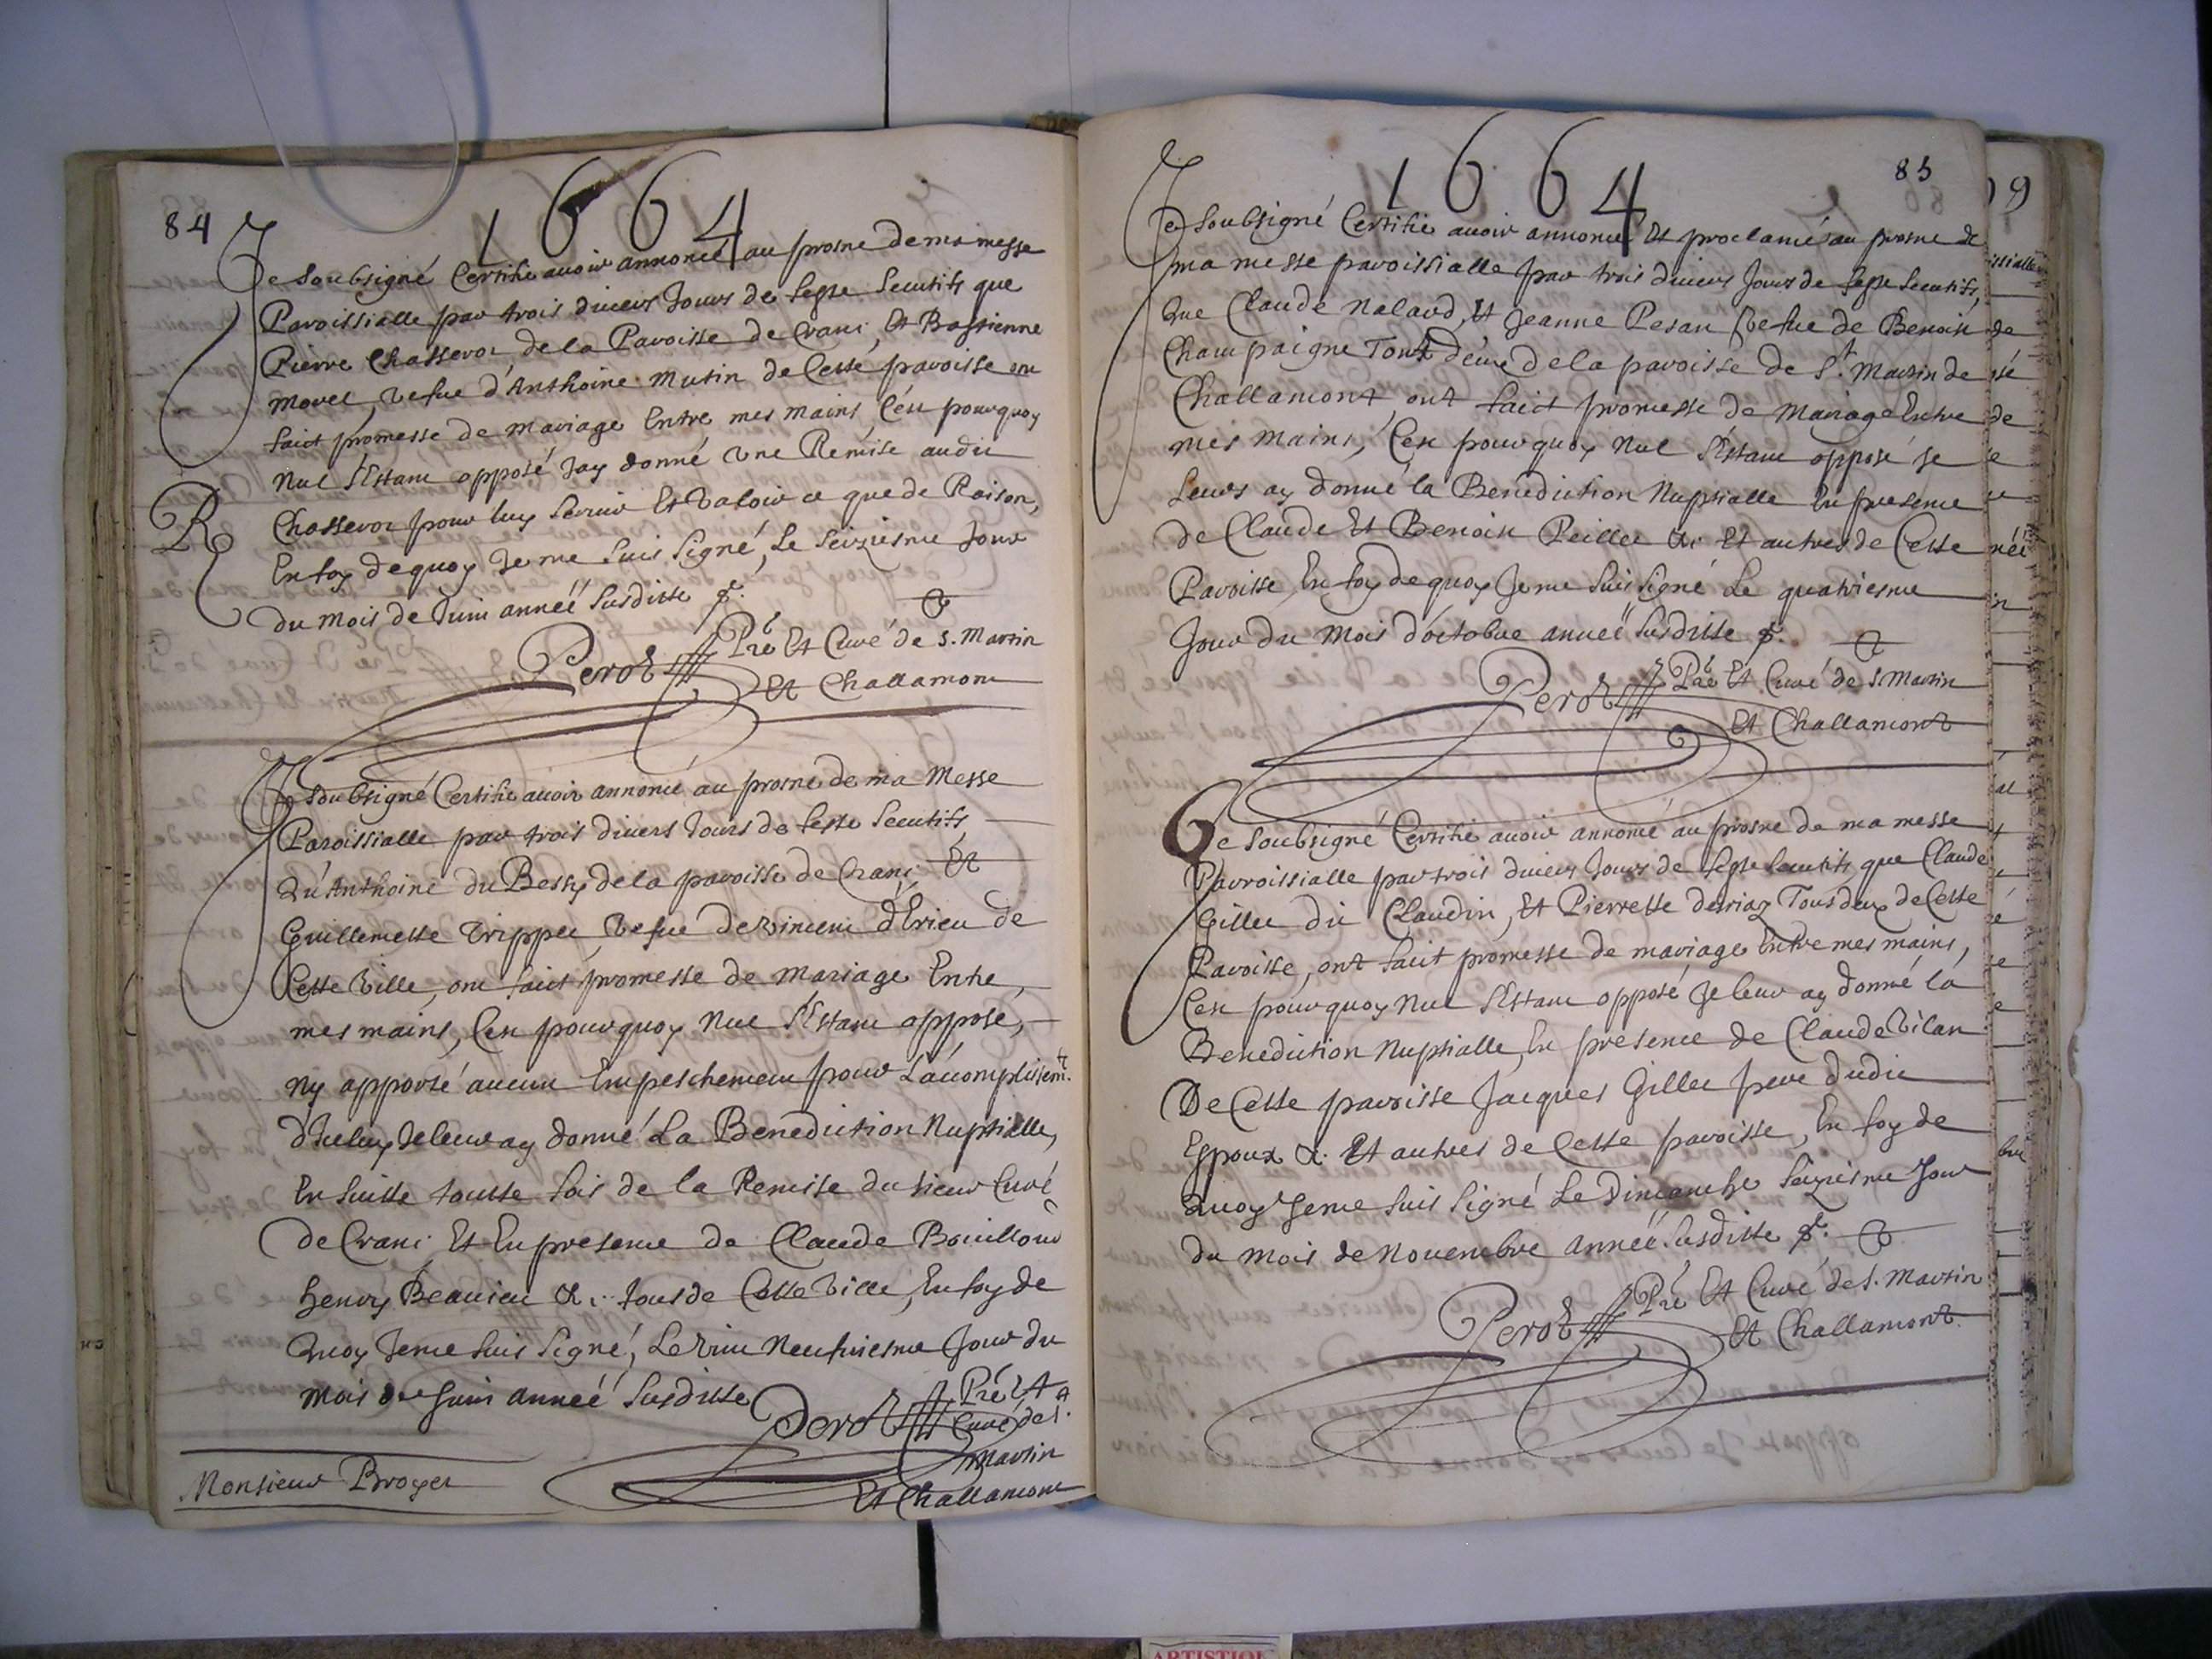 84
1664
Je soubsigné Certifie auoir annoncé au prosne de ma messe
Paroissialle par trois diuers Jours de feste secutifs que
Pierre Chasseroz de la Paroisse de Crans, Et Bastienne
Morel, vefue d'Anthoine Mutin de Cette paroisse ont
faict promesse de mariage Entre mes mains, C'est pourquoy
Nul s'Estant opposé Jay donné une Remise audit
R
Chasseroz pour luy seruir Et valoir ce que de Raison,
En foy dequoy Je me suis signé, Le seiziesme Jour
du mois de Juin année susditte &.
Peroz Pre Et Curé de S. Martin
Et Challamont
Je soubsigné Certifie auoir annoncé au prosne de ma Messe
Paroissialle par trois diuers Jours de feste secutifs,
Qu'Anthoine Du Bessy de la paroisse de Crans Et
Guillemette Trippet, vefue de vincent d'Erieu de
Cette ville, ont faict promesse de Mariage Entre
mes mains, C'est pourquoy Nul s'Estant opposé,
Ny apporté aucun Empeschement pour L'acomplissemt.
d'Iceluy Je leur ay donné La Benediction Nuptialle,
En suitte toutte fois de la Remise du sieur Curé
De Crans Et En presence de Claude Bouilloud
henry Beaulieu &. tous de Cette ville, En foy de
Quoy Je me suis signé, Le vint Neufuiesme Jour du
mois de Juin année susditte
Peroz Pre Et
Curé de S.
Martin
Et Challamont
Monsieur Broyer
1664
85
Je soubsigné Certifie auoir annoncé Et proclamé au prosne de
ma messe paroissialle par trois diuers Jours de feste secutifs,
Que Claude Nalaud, Et Jeanne Pesan vefue de Benoist
Champaigne Tont deux de la paroisse de St. Martin de
Challamont, ont faict promesse de Mariage Entre
mes Mains, C'est pourquoy Nul s'Estant opposé je
Leurs ay donné la Benediction Nuptialle En presence
de Claude Et Benoist Peillet &. Et autres de Cette
Paroisse, En foy de quoy Je me suis signé Le quatriesme
Jour du Mois d'octobre année susditte &.
Peroz Pre Et Curé de S. Martin
Et Challamont
Je soubsigné Certifie auoir annoncé au prosne de ma messe
Parroissialle par trois diuers Jours de feste secutifs que Claude
Gillet dit Claudin, Et Pierrette deniaz Tous deux de Cette
Paroisse, ont faict promesse de mariage Entre mes mains,
C'est pourquoy Nul s'Estant opposé Je leur ay donné la
Benediction Nuptialle, En presence de Claude Vilan
De Cette paroisse Jacques Gillet pere dudit
Espoux &. Et autres de Cette paroisse, En foy de
Quoy Je me suis signé Le Dimanche seiziesme Jour
du Mois de Nouembre année susditte &.
Peroz Pre Et Curé de S. Martin
Et Challamont.